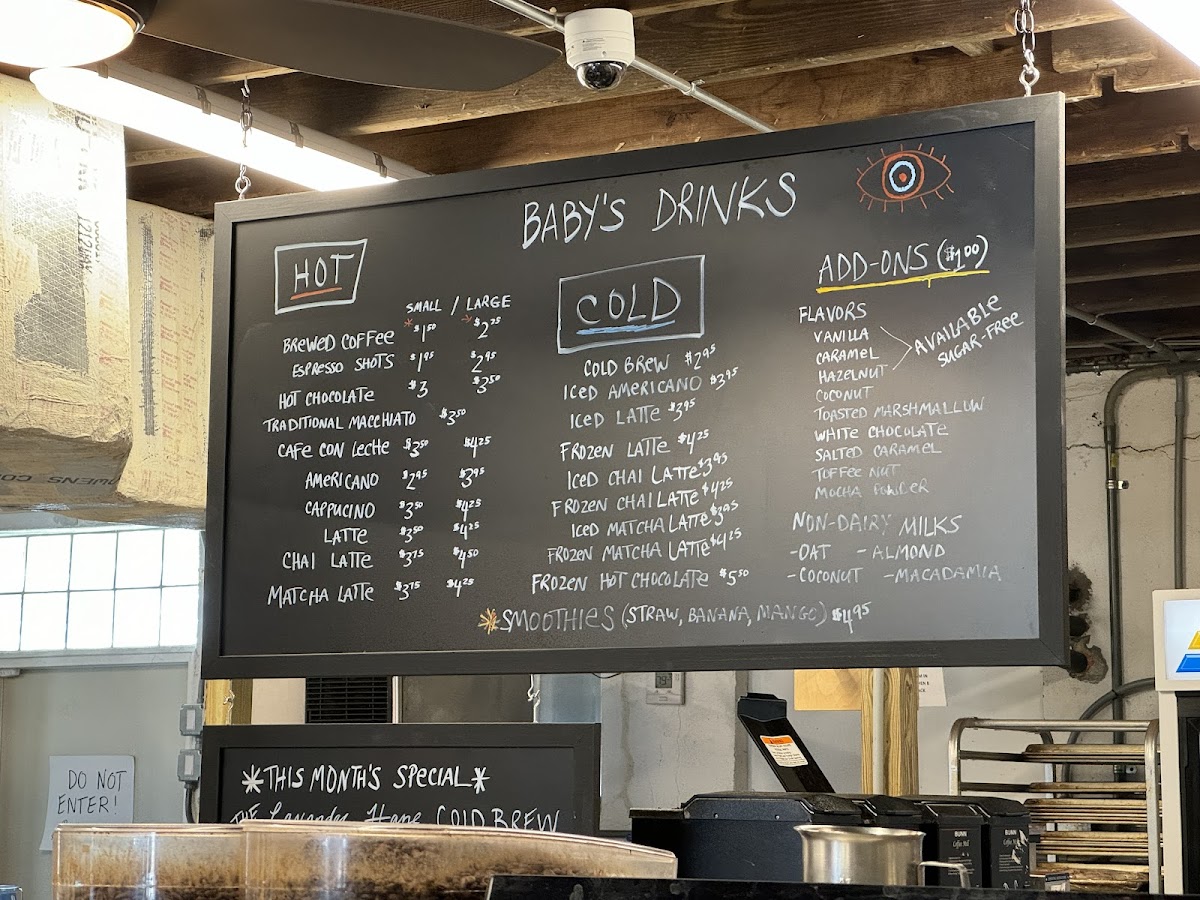 BABY'S DRINKS
HOT
SMALL / LARGE
BREWED COFFEE *$1.50 *$2.25
ESPRESSO SHOTS $1.95 $2.95
HOT CHOCOLATE $3 $3.50
TRADITIONAL MACCHIATO $3.50
CAFE CON LECHE $3.50 $4.25
AMERICANO $2.95 $3.95
CAPPUCINO $3.50 $4.25
LATTE $3.50 $4.25
CHAI LATTE $3.75 $4.50
MATCHA LATTE $3.75 $4.25
COLD
COLD BREW $2.95
ICED AMERICANO $3.95
ICED LATTE $3.95
FROZEN LATTE $4.25
ICED CHAI LATTE $3.95
FROZEN CHAI LATTE $4.25
ICED MATCHA LATTE $3.95
FROZEN MATCHA LATTE $4.25
FROZEN HOT CHOCOLATE $5.50
*SMOOTHIES (STRAW, BANANA, MANGO) $4.95
ADD-ONS ($1.00)
FLAVORS
VANILLA
CARAMEL
HAZELNUT
AVAILABLE
SUGAR-FREE
COCONUT
TOASTED MARSHMALLOW
WHITE CHOCOLATE
SALTED CARAMEL
TOFFEE NUT
MOCHA POWDER
NON-DAIRY MILKS
-OAT -ALMOND
-COCONUT -MACADAMIA
*THIS MONTH'S SPECIAL*
THE Lavender Haze COLD BREW
DO NOT
ENTER!
BUNN
BUNN